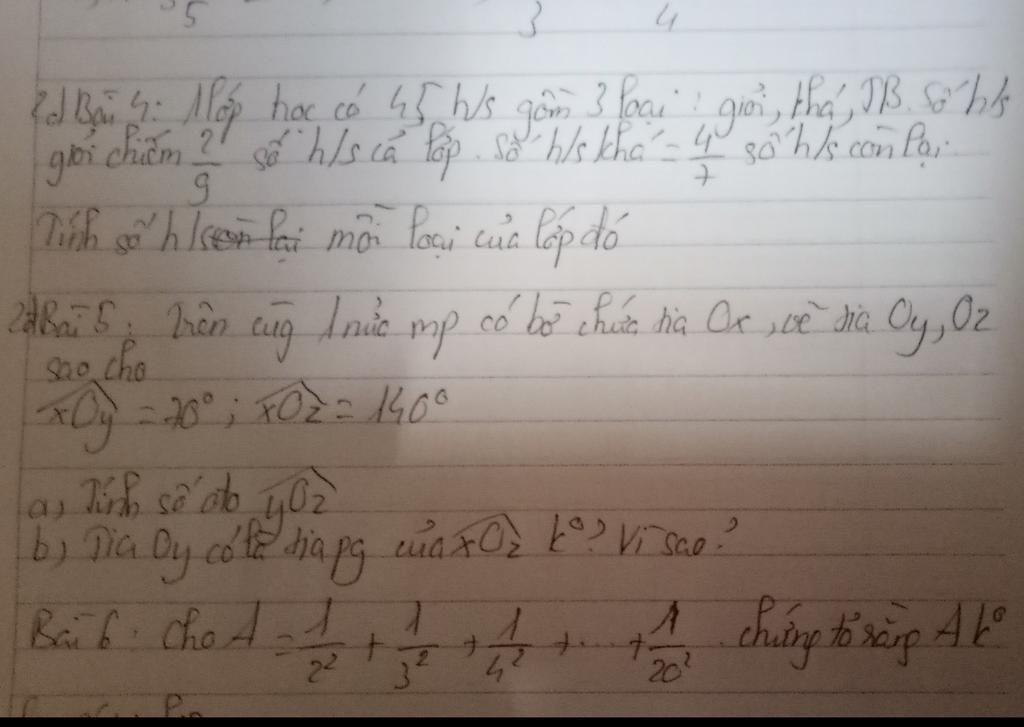 5 3 4
2đ Bài 4: 1 lớp học có 45 h/s gồm 3 loại: giỏi, khá, TB. Số h/s
giỏi chiếm 2/9 số h/s cả lớp. Số h/s khá = 4/7 số h/s còn lại.
Tính số h/s còn lại mỗi loại của lớp đó
2đ Bài 5: Trên cùg 1 nửa mp có bờ chứa tia Ox, vẽ tia Oy, Oz
sao cho
xOy = 70°; xOz = 140°
a, Tính số đo yOz
b, Tia Oy có là tia pg của xOz k°? Vì sao?
Bài 6: Cho A = 1/2² + 1/3² + 1/4² + ... + 1/20². chứng tỏ rằng A k°